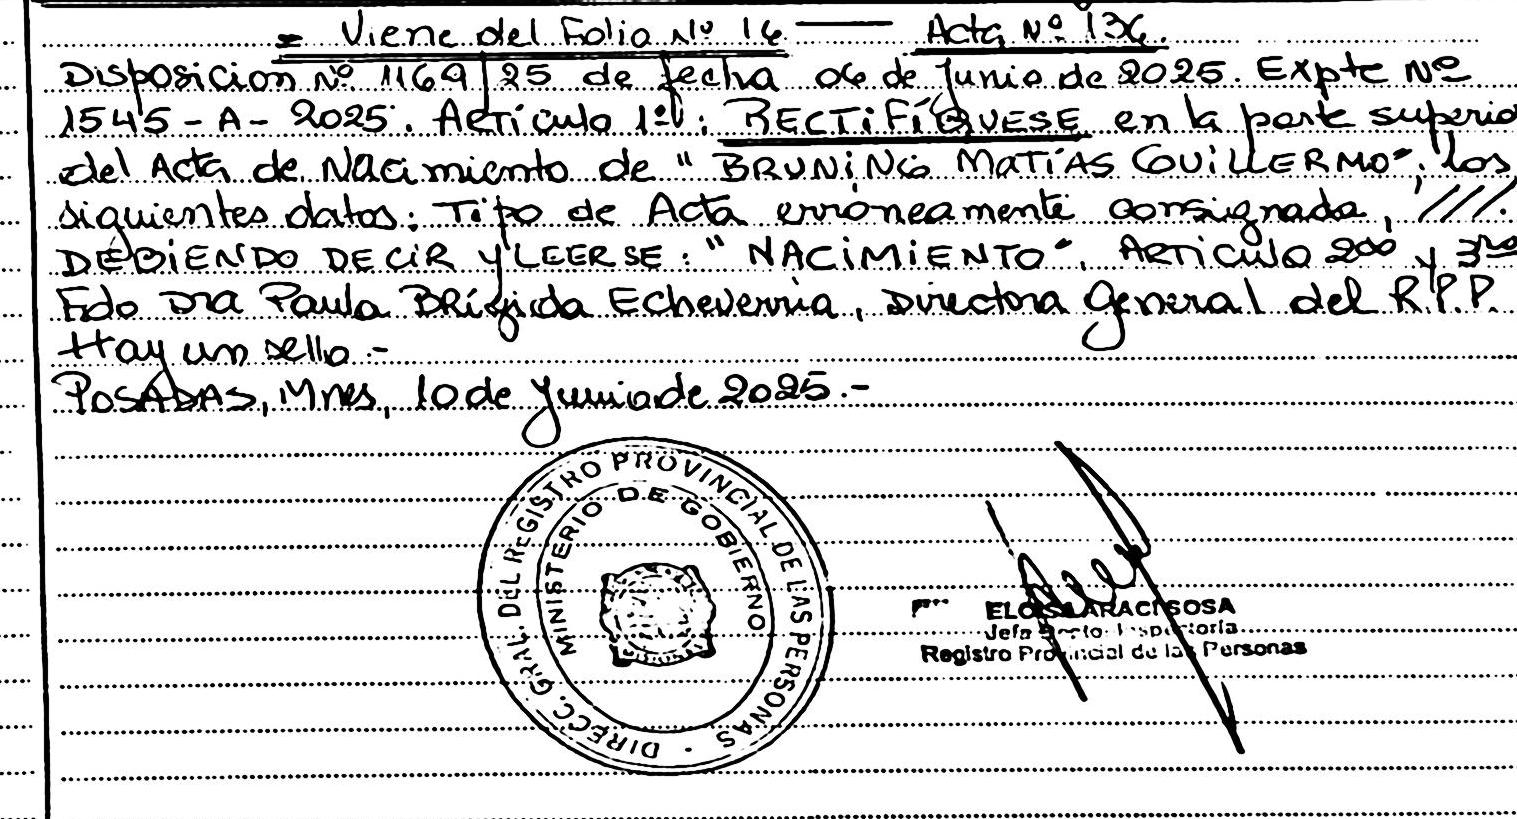 = Viene del Folio Nº 16 —— Acta Nº 136.
Disposicion Nº 1169/25 de fecha 06 de Junio de 2025. Expte Nº
1545-A-2025. Articulo 1º: RECTIFÍQUESE en la parte superio
del Acta de Nacimiento de "BRUNING MATÍAS GUILLERMO", los
siguientes datos: Tipo de Acta erróneamente consignada, ///.
DEBIENDO DECIR Y LEERSE: "NACIMIENTO". ARTICULO 2do y 3ro
Fdo Dra Paula BRígida Echeverria, Directora General del R.P.P.
Hay un sello.-
POSADAS, Mnes, 10 de Junio de 2025.-
DIRECC. GRAL. DEL REGISTRO PROVINCIAL DE LAS PERSONAS
MINISTERIO DE GOBIERNO
ELOISA ARACI SOSA
Jefa Dpto. Inspectoría
Registro Provincial de las Personas